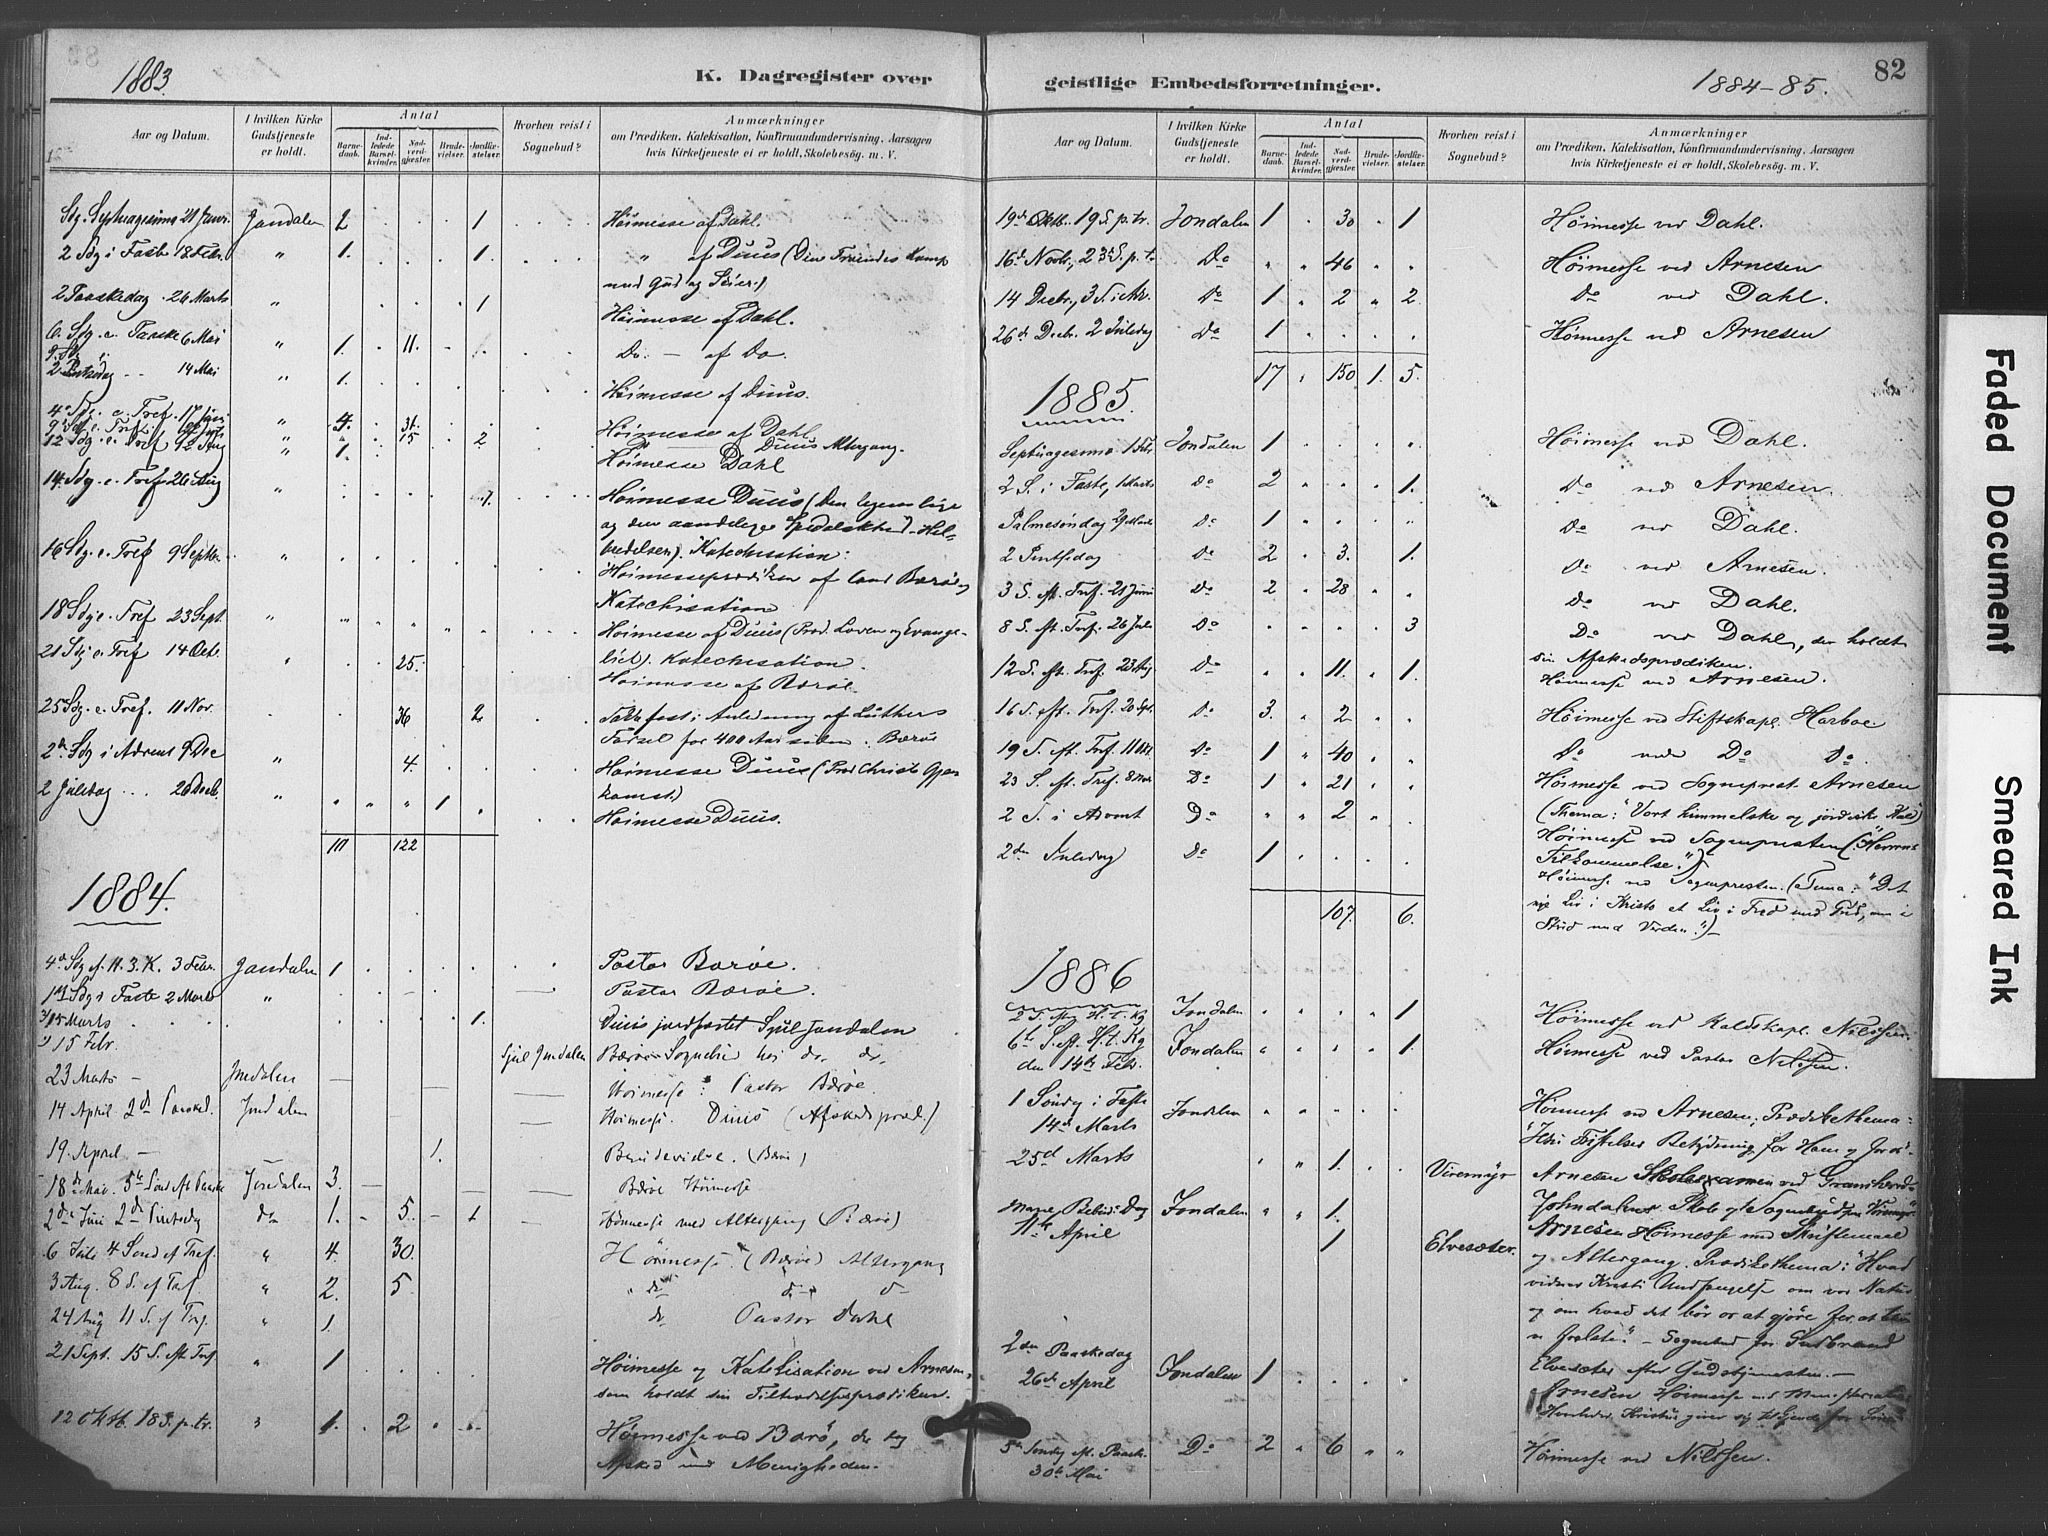 1883.
K. Dagregister over
Aar og Datum.
I hvilken Kirke Gudstjeneste er holdt.
Antal
Barnedaab.
Indledede Barselkvinder.
Nadverdgjæster.
Brudevielser.
Jordfæstelser.
Hvorhen reist i Sognebud?
Anmærkninger
om Prædiken, Katekisation, Konfirmandundervisning, Aarsagen
hvis Kirketjeneste ei er holdt, Skolebesög. m. V.
Sdg. Septuagesima 21 Janr. Jondalen 2 1 Höimesse af Dahl.
2 Sdg i Faste 18 Febr. " 1. 1. " af Duus (Din Troendes Kamp
med Gud og Seier.)
2 Paaskedag 26 Marts " 1 Höimesse af Dahl.
6. Sdg. e. Paaske 6 Mai " 1. 11. Do. — af Do.
2 14 Mai " 1. Höimesse af Duus.
4 Sdg. e. Tref. 17 Juni " 4. 31. Höimesse af Dahl.
" 15 2 Do Duus Altergang.
12 Sdg. e. Tref 12 Aug " 1. Höimesse Dahl
14. Sdg. e. Tref. 26 Aug " 1. Höimesse Duus (Den legemlige
og den aandelige Spedalskhed Hel-
bredelsen). Katechisation.
16 Sdg. e. Tref 9 Septbr. " Höimesseprædiken af Bæröe,
Katechisation
18 Sdg e. Tref 23 Sept. " Höimesse af Duus (Præd. Loven og Evange-
liet). Katechisation.
21 Sdg e. Tref 14 Octr. " 25. Höimesse af Bæröe.
25 Sdg. e. Tref. 11 Nov. 36 2. Takkefest i Anledning af Luthers
Födsel for 400 Aar siden. Bæröe
2den Sdg i Advent 9 Dec " 4. Höimesse Duus (Præd Christi Gjen-
komst.)
2 Juledag ... 26 Decb. " " " " 1 Höimesse Duus.
10 122
1884.
4de Sdg ef. H. 3. K. 3 Febr. Jondalen 1 Pastor Bæröe.
1ste Sdg i Faste 2 Marts " Pastor Bæröe.
15 Marts 1. Duus jordfæstet Sjul Jondalen
15 Febr. Sjul Jondalen Bæröe Sognebud hos do do
23 Marts — Jondalen Höimesse: Pastor Bæröe.
14 April 2den Paaskd. Jondalen Höimesse: Duus (Afskedspræd.)
19. April — 1. Brudevielse. (Bærö)
18de Mai. 5te Sönd eft Paaske Jondalen 3. Bæröe Höimesse
2den Juni 2den Pintsedag do 1. 5. 1 Höimesse med Altergang (Bæröe)
6 Juli 4 Sönd ef Tref. " 4. 30. Höimesse (Bæröe) Altergang
3 Aug. 8 S. ef Tref " 2. 5 " do do do
24 Aug 11 S. ef Tref. " 1. do Pastor Dahl
21 Sept. 15 S. eft Tref " 1 Höimesse og Katekisation ved Arnesen,
som holdt sin Tiltrædelsesprædiken.
12 Oktb. 18 S. p. tr. " 1. 2 Höimesse ved Bærö, der tog
Afsked med Menigheden.
82
geistlige Embedsforretninger.
1884-85.
Aar og Datum.
I hvilken Kirke Gudstjeneste er holdt.
Antal
Barnedaab.
Indledede Barselkvinder.
Nadverdgjæster.
Brudevielser.
Jordfæstelser.
Hvorhen reist i Sognebud?
Anmærkninger
om Prædiken, Katekisation, Konfirmandundervisning, Aarsagen
hvis Kirketjeneste ei er holdt, Skolebesög. m. V.
19de Oktb. 19 S. p. tr. Jondalen 1 30 1 Höimesse ved Dahl.
16de Novb., 23de S. p. tr Do " " 46 " " Höimesse ved Arnesen
14 Decbr., 3 S. i Adv. Do 1 " 2 " 2. Do ved Dahl.
26de Decbr. 2 Juledag Do 1 Höimesse ved Arnesen
17 150 1. 5.
1885.
Septuagesima 1 Feb Jondalen 1 Höimesse ved Dahl.
2 S. i Faste, 1 Marts Do 2 1. Do ved Arnesen.
Palmesöndag 29 Marts Do 1 Do ved Dahl.
2 Pintsedag Do 2 3. 1. Do ved Arnesen.
3 S. eft. Tref. 21 Juni Do 2 28 Do ved Dahl.
8 S. eft. Tref. 26 Juli Do 3 Do ved Dahl, der holdt
sin Afskedsprædiken.
12 S. eft. Tref. 23 Aug Do 11. 1. Höimesse ved Arnesen.
16 S. eft. Tref. 20 Spt. Do 3. 2 Höimesse ved Stiftskapl. Harboe.
19 S. eft. Tref. 11 Okt. Do 1 40 Do ved Do Do
23 S. eft. Tref. 8 Nov. Do 1 21 Höimesse ved Sogneprest Arnesen
(Thema: "Vort himmelske og jordiske Kald)
2 S. i Advent Do " " 2 Höimesse ved Sognepresten ("Herrens
Tilkommelse.")
2den Juledag Do 1 Höimesse ved Sognepresten. (Tema: "Det
nye Liv i Kristo et Liv i Fred med Gud, om i
Strid med Verden.")—
107. 6.
1886
2 S. H. t. Kg Jondalen 1 Höimesse ved Kaldskapl. Nilssen.
6te S. eft. H. t. Kg
den 14de Feb. Jondalen 1. Höimesse ved Pastor Nilssen.
1 Söndg i Faste
14de Marts Jondalen Höimesse ved Arnesen; Prædikethema:
"Jesu Fristelses Betydning for Ham og for os".
25de Marts " " 1. Viremyr Arnesen Skoleexamen ved
Johndalens Skole og Sognebud paa Viremyr.
Mariæ Beb. Dag
11te April Jondalen " " 1. Arnesen Höimesse med Skriftemaal
1 Elvesæter. og Altergang. Prædikethema: "Hvad
vidner Kristi Undfangelse om vor Natur
og om hvad det bör os at gjöre for at blive
frelste." — Sognebud for Gudbrand
Elvesæter efter Gudstjenesten.—
2den Paaskedag
26de April Jondalen 1 Arnesen Höimesse
Hvorledes Kristus giver sig tilkjende for Sine
5te Söndg eft. Paaske
30te Mai Do 2 " 6 " " Höimesse ved Nilssen.
Faded Document
Smeared Ink